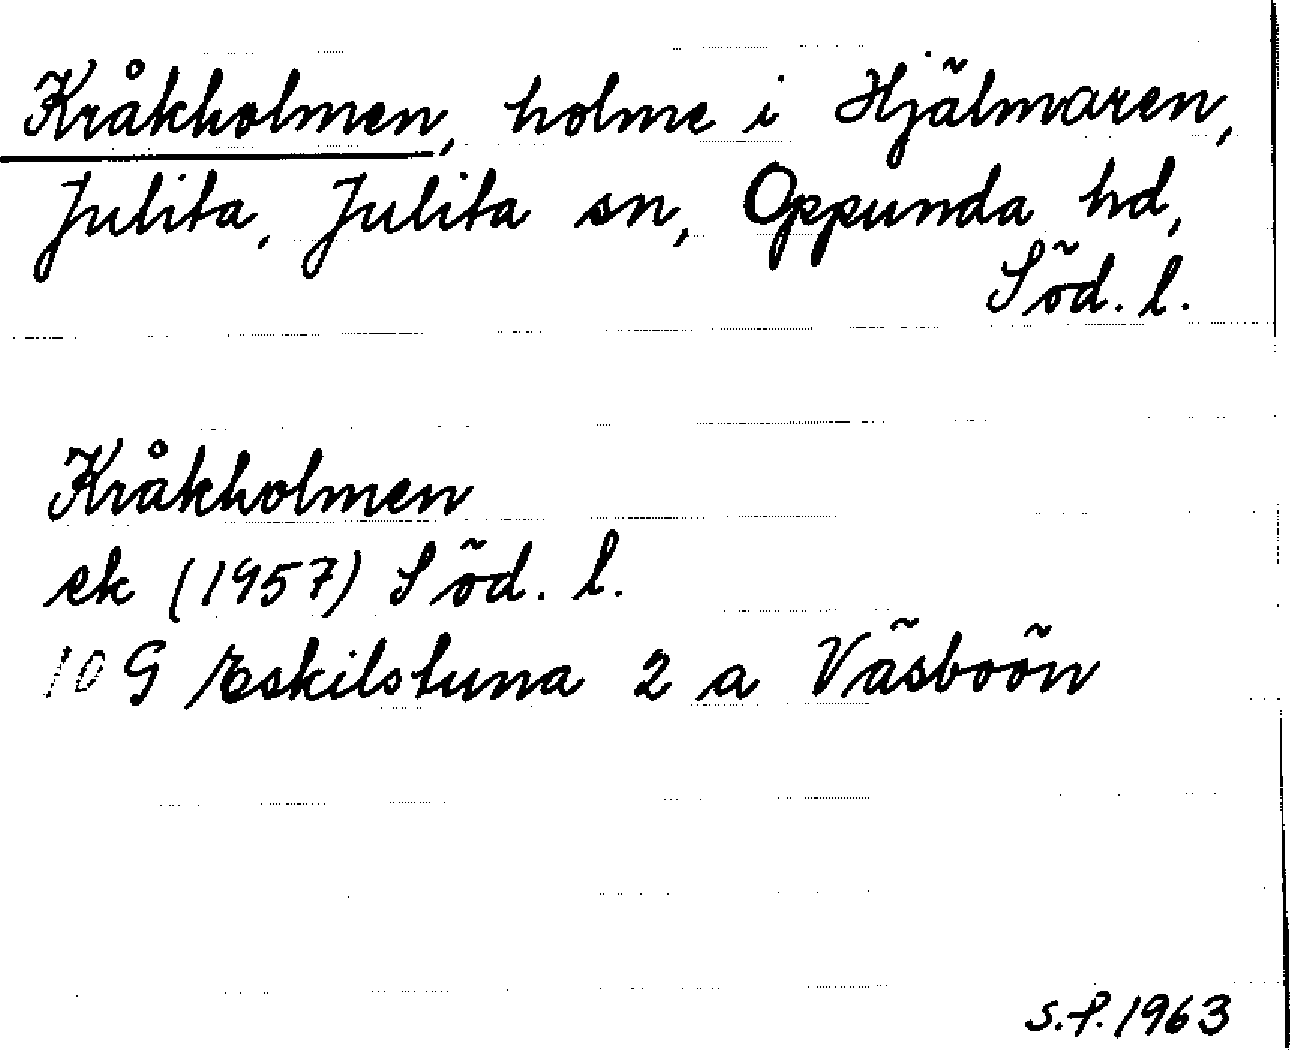 Kråkholmen, holme i Hjälmaren,
Julita, Julita sn, Oppunda hd,
Söd. l.
Kråkholmen
ek (1957) Söd. l.
10 G Eskilstuna 2 a Väsboön
S.P. 1963